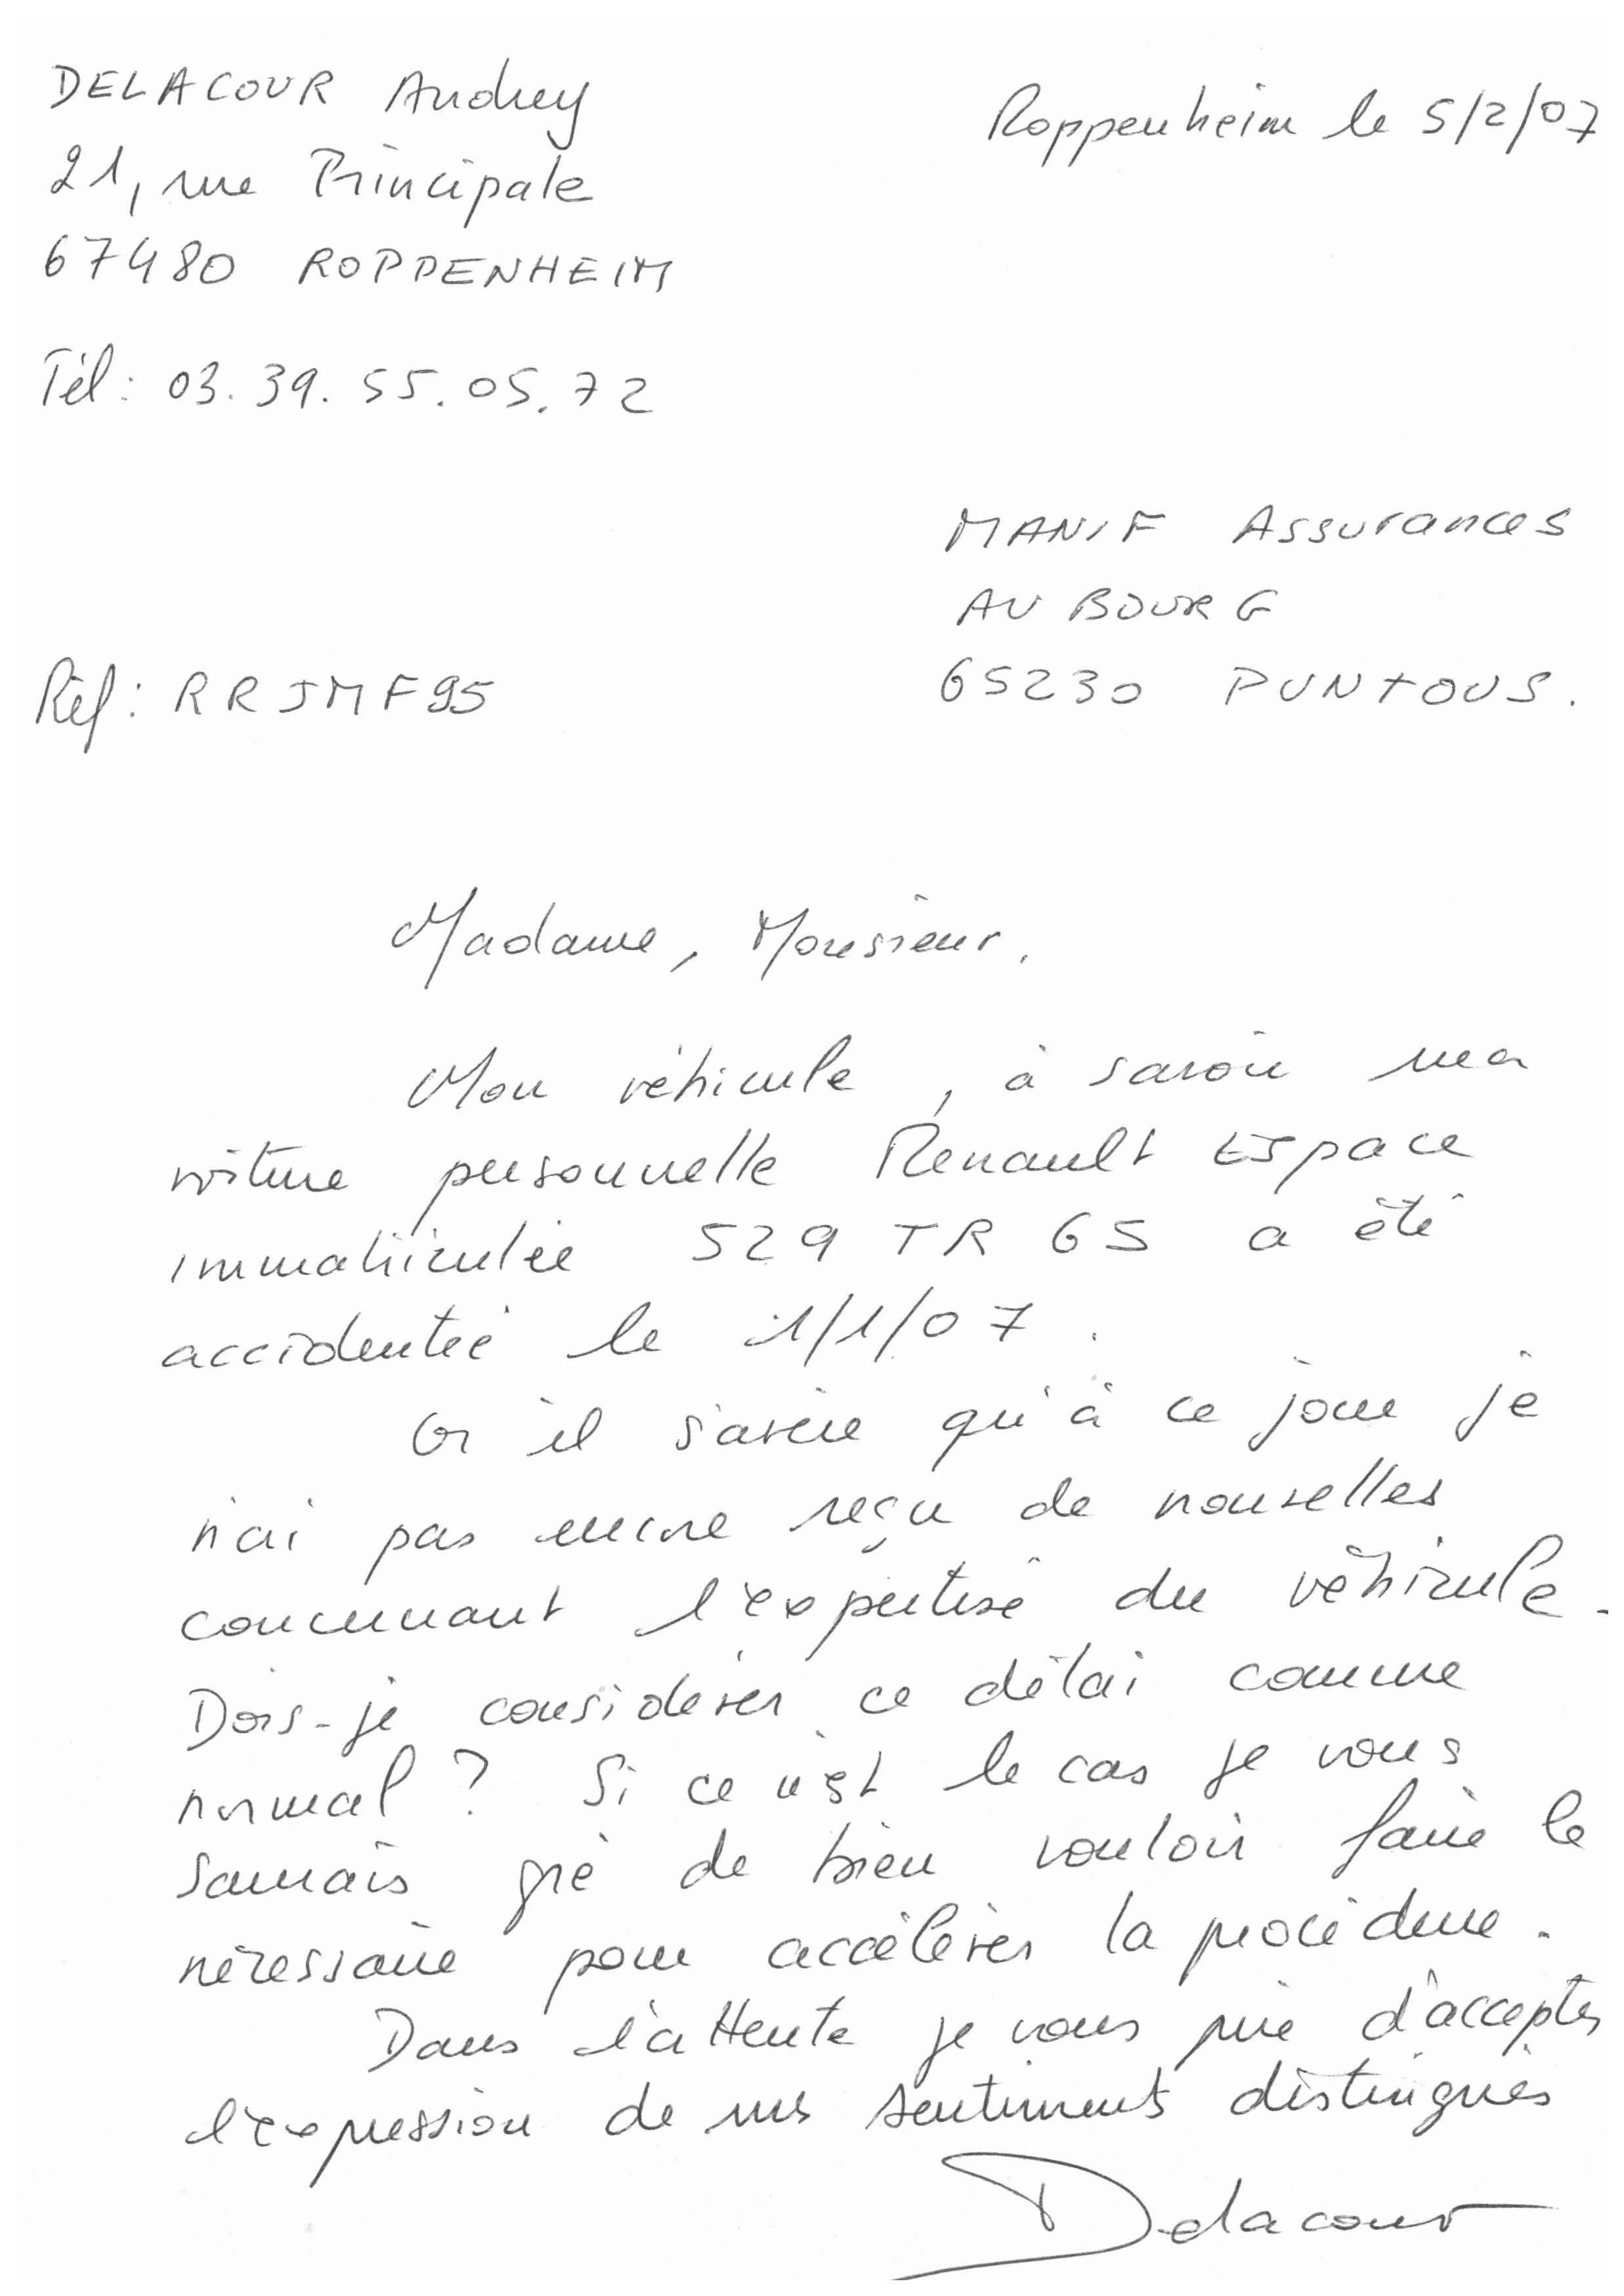 DELACOUR Audrey
Roppenheim le 5/2/07
21, rue Principale
67480 ROPPENHEIM
Tél: 03.39.55.05.72
MANIF Assurances
AU BOURG
Réf: RRJMF95
65230 PUNTOUS.
Madame, Monsieur,
Mon véhicule, à savoir ma
voiture personnelle Renault Espace
immatriculée 529 TR 65 a été
accidentée le 1/1/07.
Or il s'avère qu'à ce jour je
n'ai pas encore reçu de nouvelles
concernant l'expertise du véhicule.
Dois-je considérer ce délai comme
normal ? Si ce n'est le cas je vous
saurais gré de bien vouloir faire le
nécessaire pour accélérer la procédure.
Dans l'attente je vous prie d'accepter
l'expression de mes sentiments distingués
Delacour